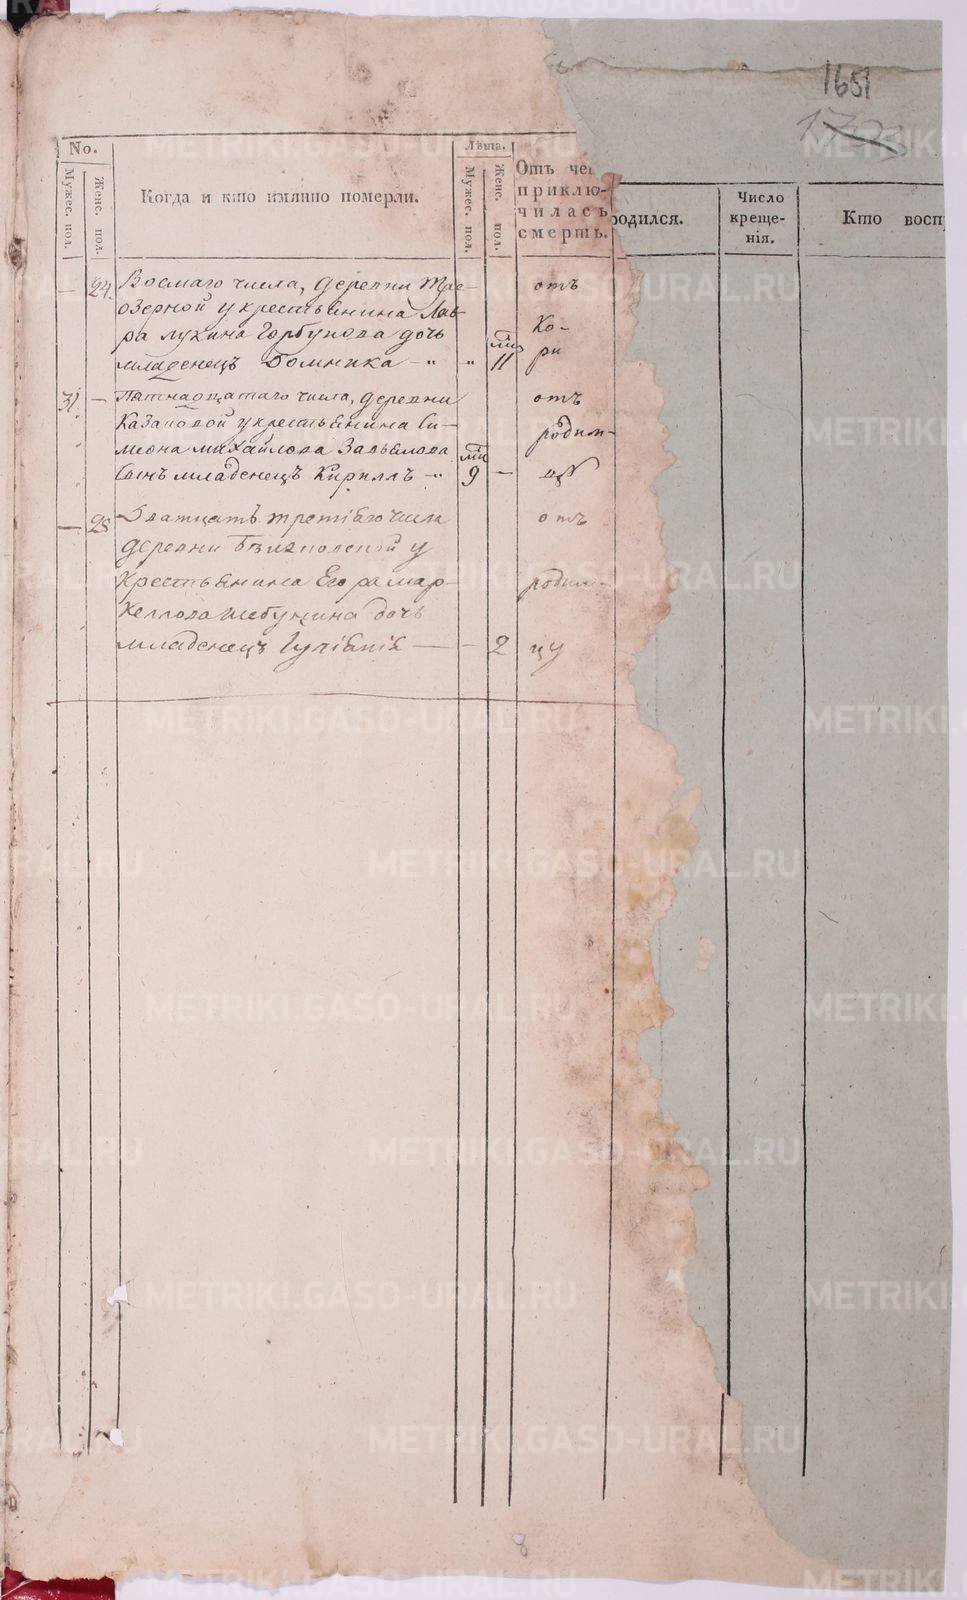 1651
No.
Мужес. пол.
Женс. пол.
Когда и кто имянно померли.
Лѣта.
Мужес. пол.
Женс. пол.
Отъ че
приклю-
чилась
смерть.
родился.
Число
креще-
нія.
Кто восп
24. Восмаго числа, деревни Трe-
озерной у крестьянина Лав-
ра Лукина Горбунова дочь
младенецъ Домника 11
отъ
Ко-
ри
31. Пятнадцатаго числа, деревни
Казаковой у крестьянина Си-
меона Михайлова Завьялова
сынъ младенецъ Кириллъ 9
отъ
родим-
цу
25 Дватцать третіяго числа
деревни у
крестьянина Егора Мар-
келлова дочь
младенецъ 2
отъ
родим-
цу
METRIKI.GASO-URAL.RU